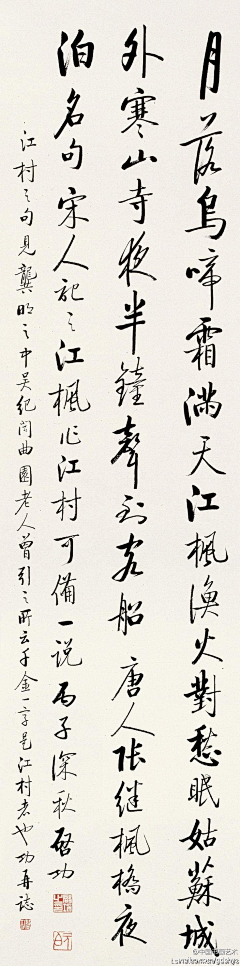 月落烏啼霜滿天江楓漁火對愁眠姑蘇城
外寒山寺夜半鐘聲到客船 唐人張繼楓橋夜
泊名句宋人記之江楓作江村可備一說 丙子深秋啟功
江村之句見龔明之中吳紀聞曲園老人曾引之所云千金一字是江村者也 功再誌
@中国书画艺术